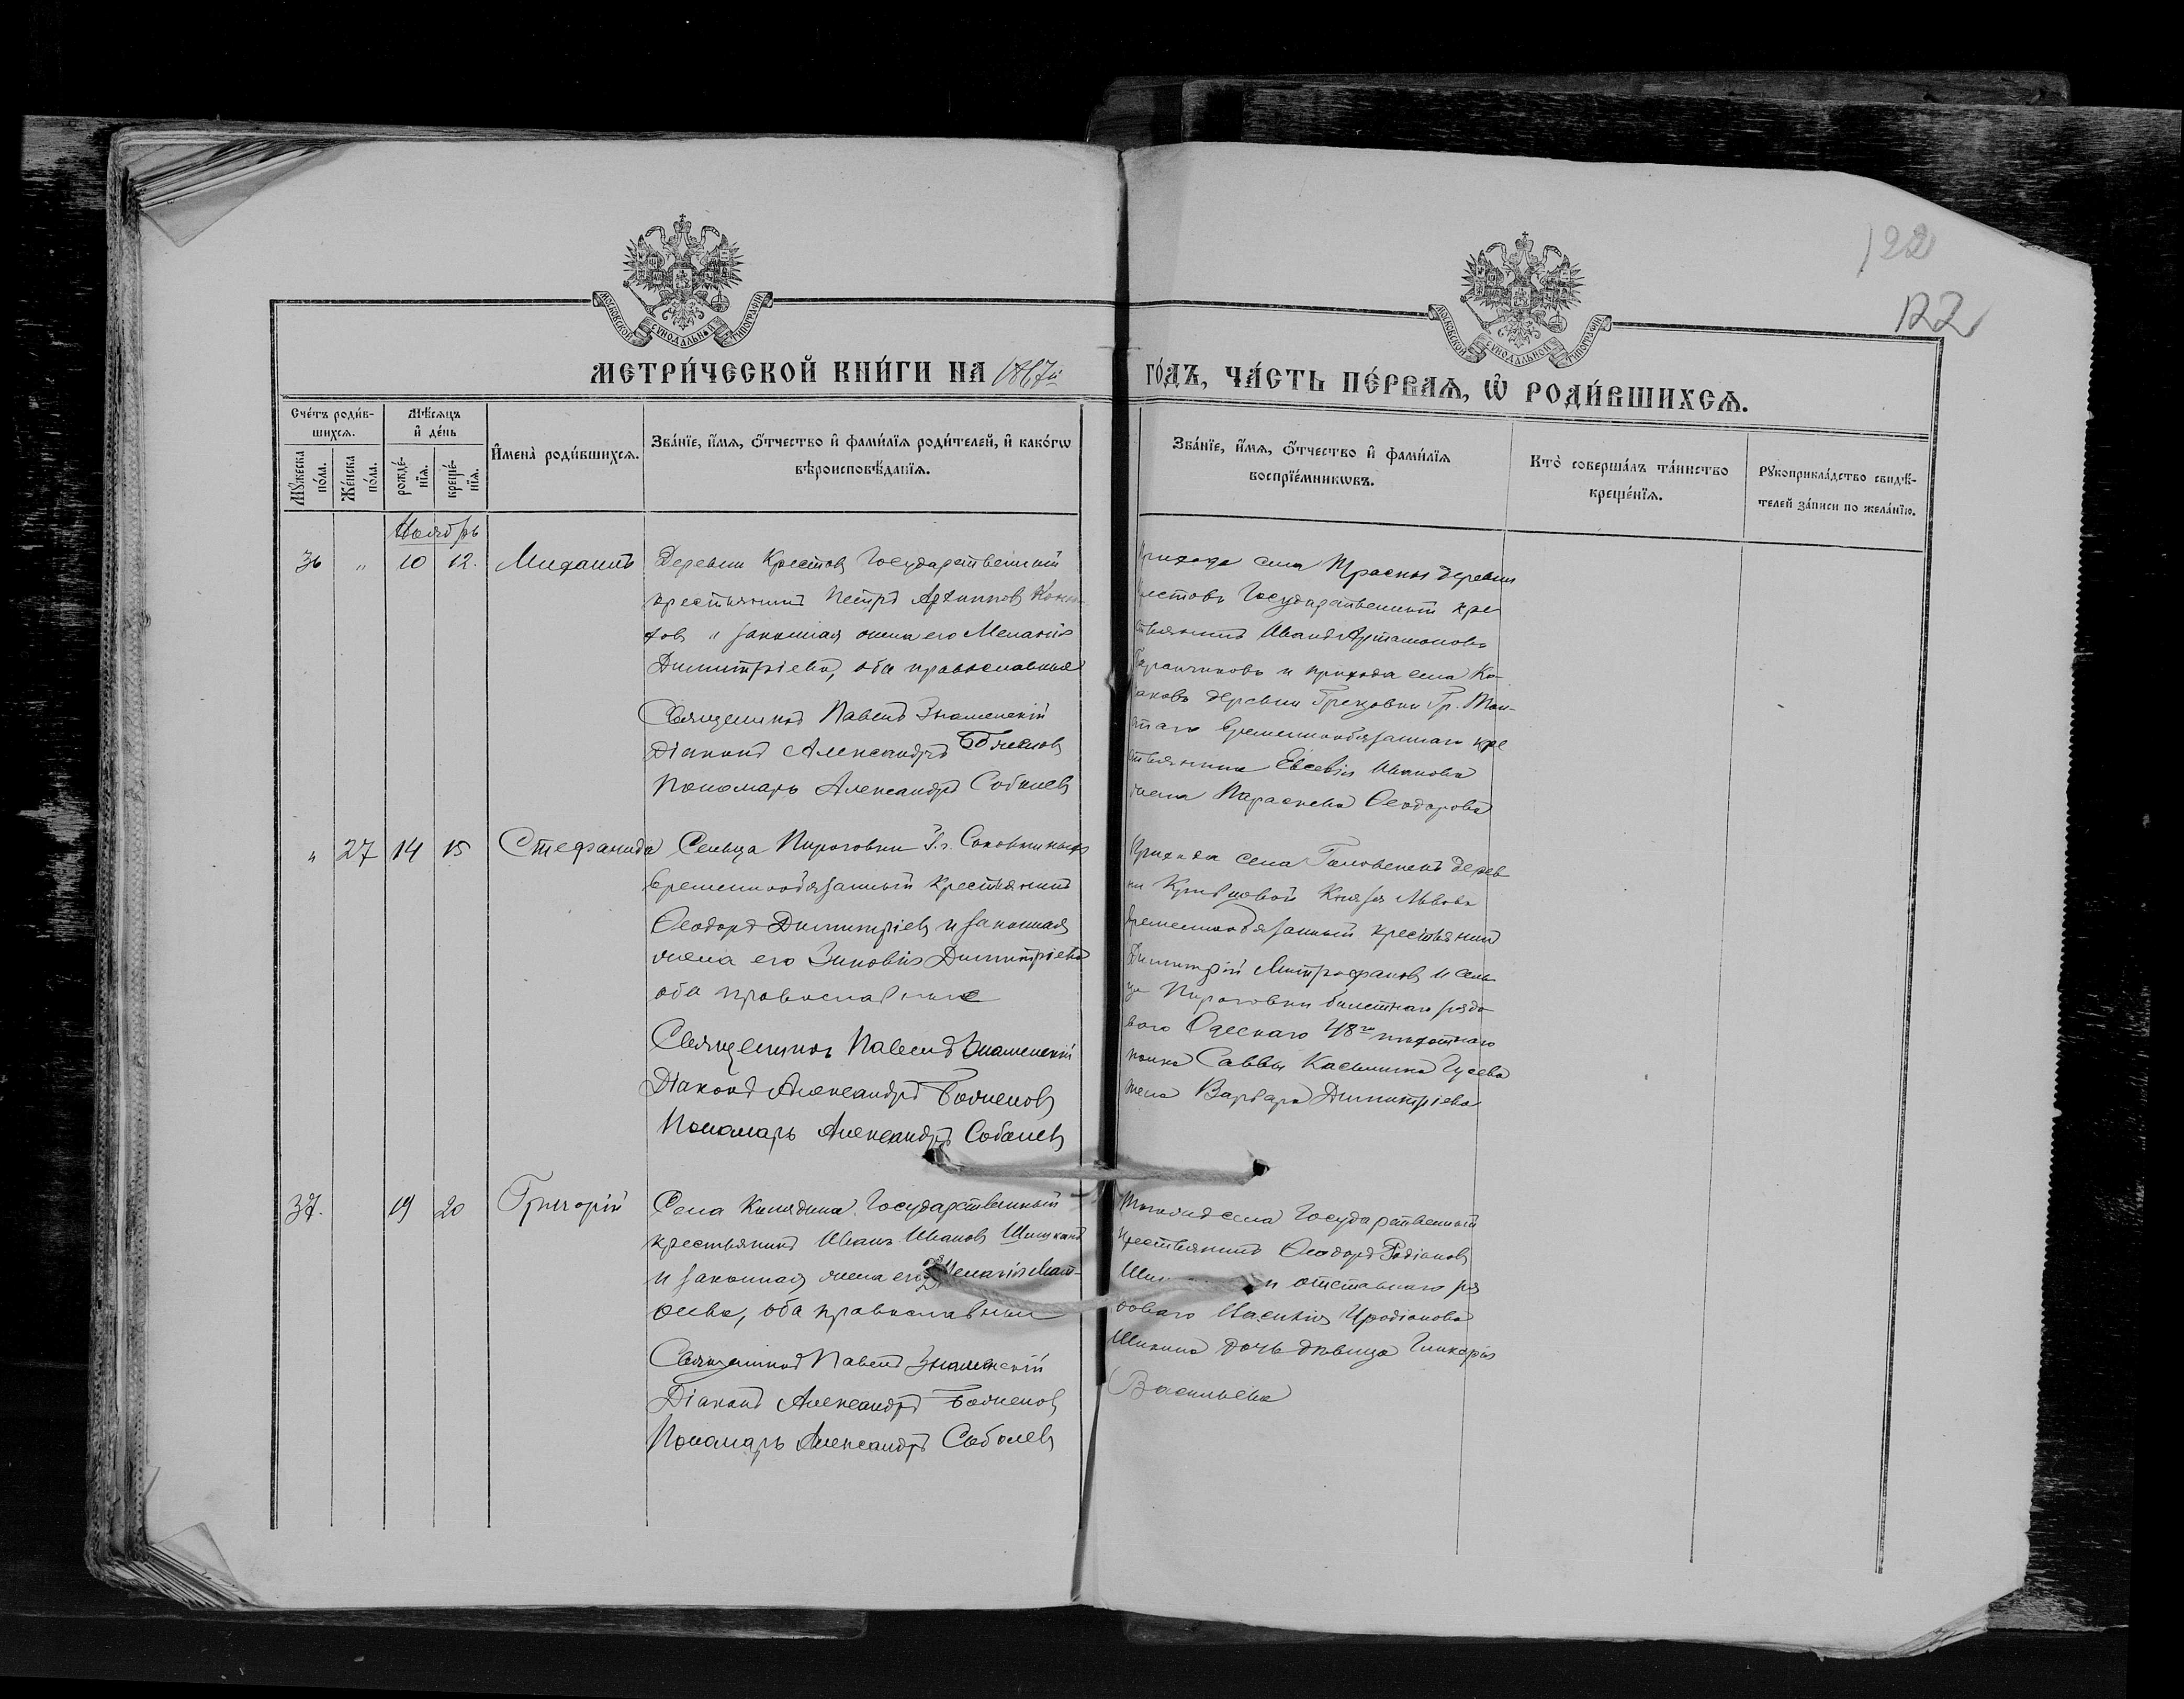 122
122
МОСКОВСКОЙ СѴНОДАЛЬНОЙ ТИПОГРАФІИ
МОСКОВСКОЙ СѴНОДАЛЬНОЙ ТИПОГРАФІИ
МЕТРИ́ЧЕСКОЙ КНИ́ГИ НА 1867й ГО́ДЪ, ЧА́СТЬ ПЕ́РВАѦ, Ѿ РОДИ́ВШИХСѦ.
Сче́тъ роди́вшихсѧ.
Мꙋ́жеска по́ла.
Же́нска по́ла.
Мѣ́сѧцъ и҆ де́нь
рожде́нїѧ.
креще́нїѧ.
И҆мена̀ роди́вшихсѧ.
Зва́нїе, и҆́мѧ, ѻ҆́тчество и҆ фами́лїѧ роди́телей, и҆ како́гѡ
вѣроисповѣ́данїѧ.
Зва́нїе, и҆́мѧ, ѻ҆́тчество и҆ фами́лїѧ
воспрїе́мникѡвъ.
Кто̀ соверша́лъ та́инство
креще́нїѧ.
Рꙋкоприкла́дство свидѣ́-
телей за́писи по жела́нїю.
Ноябрь
36 " 10 12. Михаилъ
Деревни Крестовъ Государственный
крестьянинъ Петръ Архиповъ
и законная жена его Меланія
Димитріева, оба православные
Священникъ Павелъ Знаменскій
Діаконъ Александръ Боженовъ
Пономарь Александръ Соболевъ
Прихода села деревни
Крестовъ Государственный кре
стьянинъ Иванъ Артамоновъ
и прихода села
деревни Гр. Тол-
стаго временнообязаннаго кре
стьянина Евсевія Иванова
жена Параскева Ѳеодорова
" 27 14 15 Стефанида
Сельца Пироговки
временнообязанный крестьянинъ
Ѳеодоръ Димитріевъ и законная
жена его Зиновія Димитріева
оба православные
Священникъ Павелъ Знаменскій
Діаконъ Александръ Боженовъ
Пономарь Александръ Соболевъ
Прихода села Головенекъ дерев
ни Кривцовой Князя Львова
временнообязанный крестьянинъ
Димитрій Митрофановъ и сель
ца Пироговки билетнаго рядо
ваго Одескаго 48го пехотнаго
полка Саввы Касьянина Гусева
жена Варвара Димитріева
37. 19 20 Григорій
Села Князина Государственный
крестьянинъ Иванъ Ивановъ
и законная жена его Меланія Мат-
ѳеева, оба православные
Священникъ Павелъ Знаменскій
Діаконъ Александръ Боженовъ
Пономарь Александръ Соболевъ
Тогожъ села Государственный
крестьянинъ Ѳеодоръ Родіоновъ
и отставнаго ря
доваго Василія Иродіонова
Шикина дочь дѣвица Гликерія
Васильева